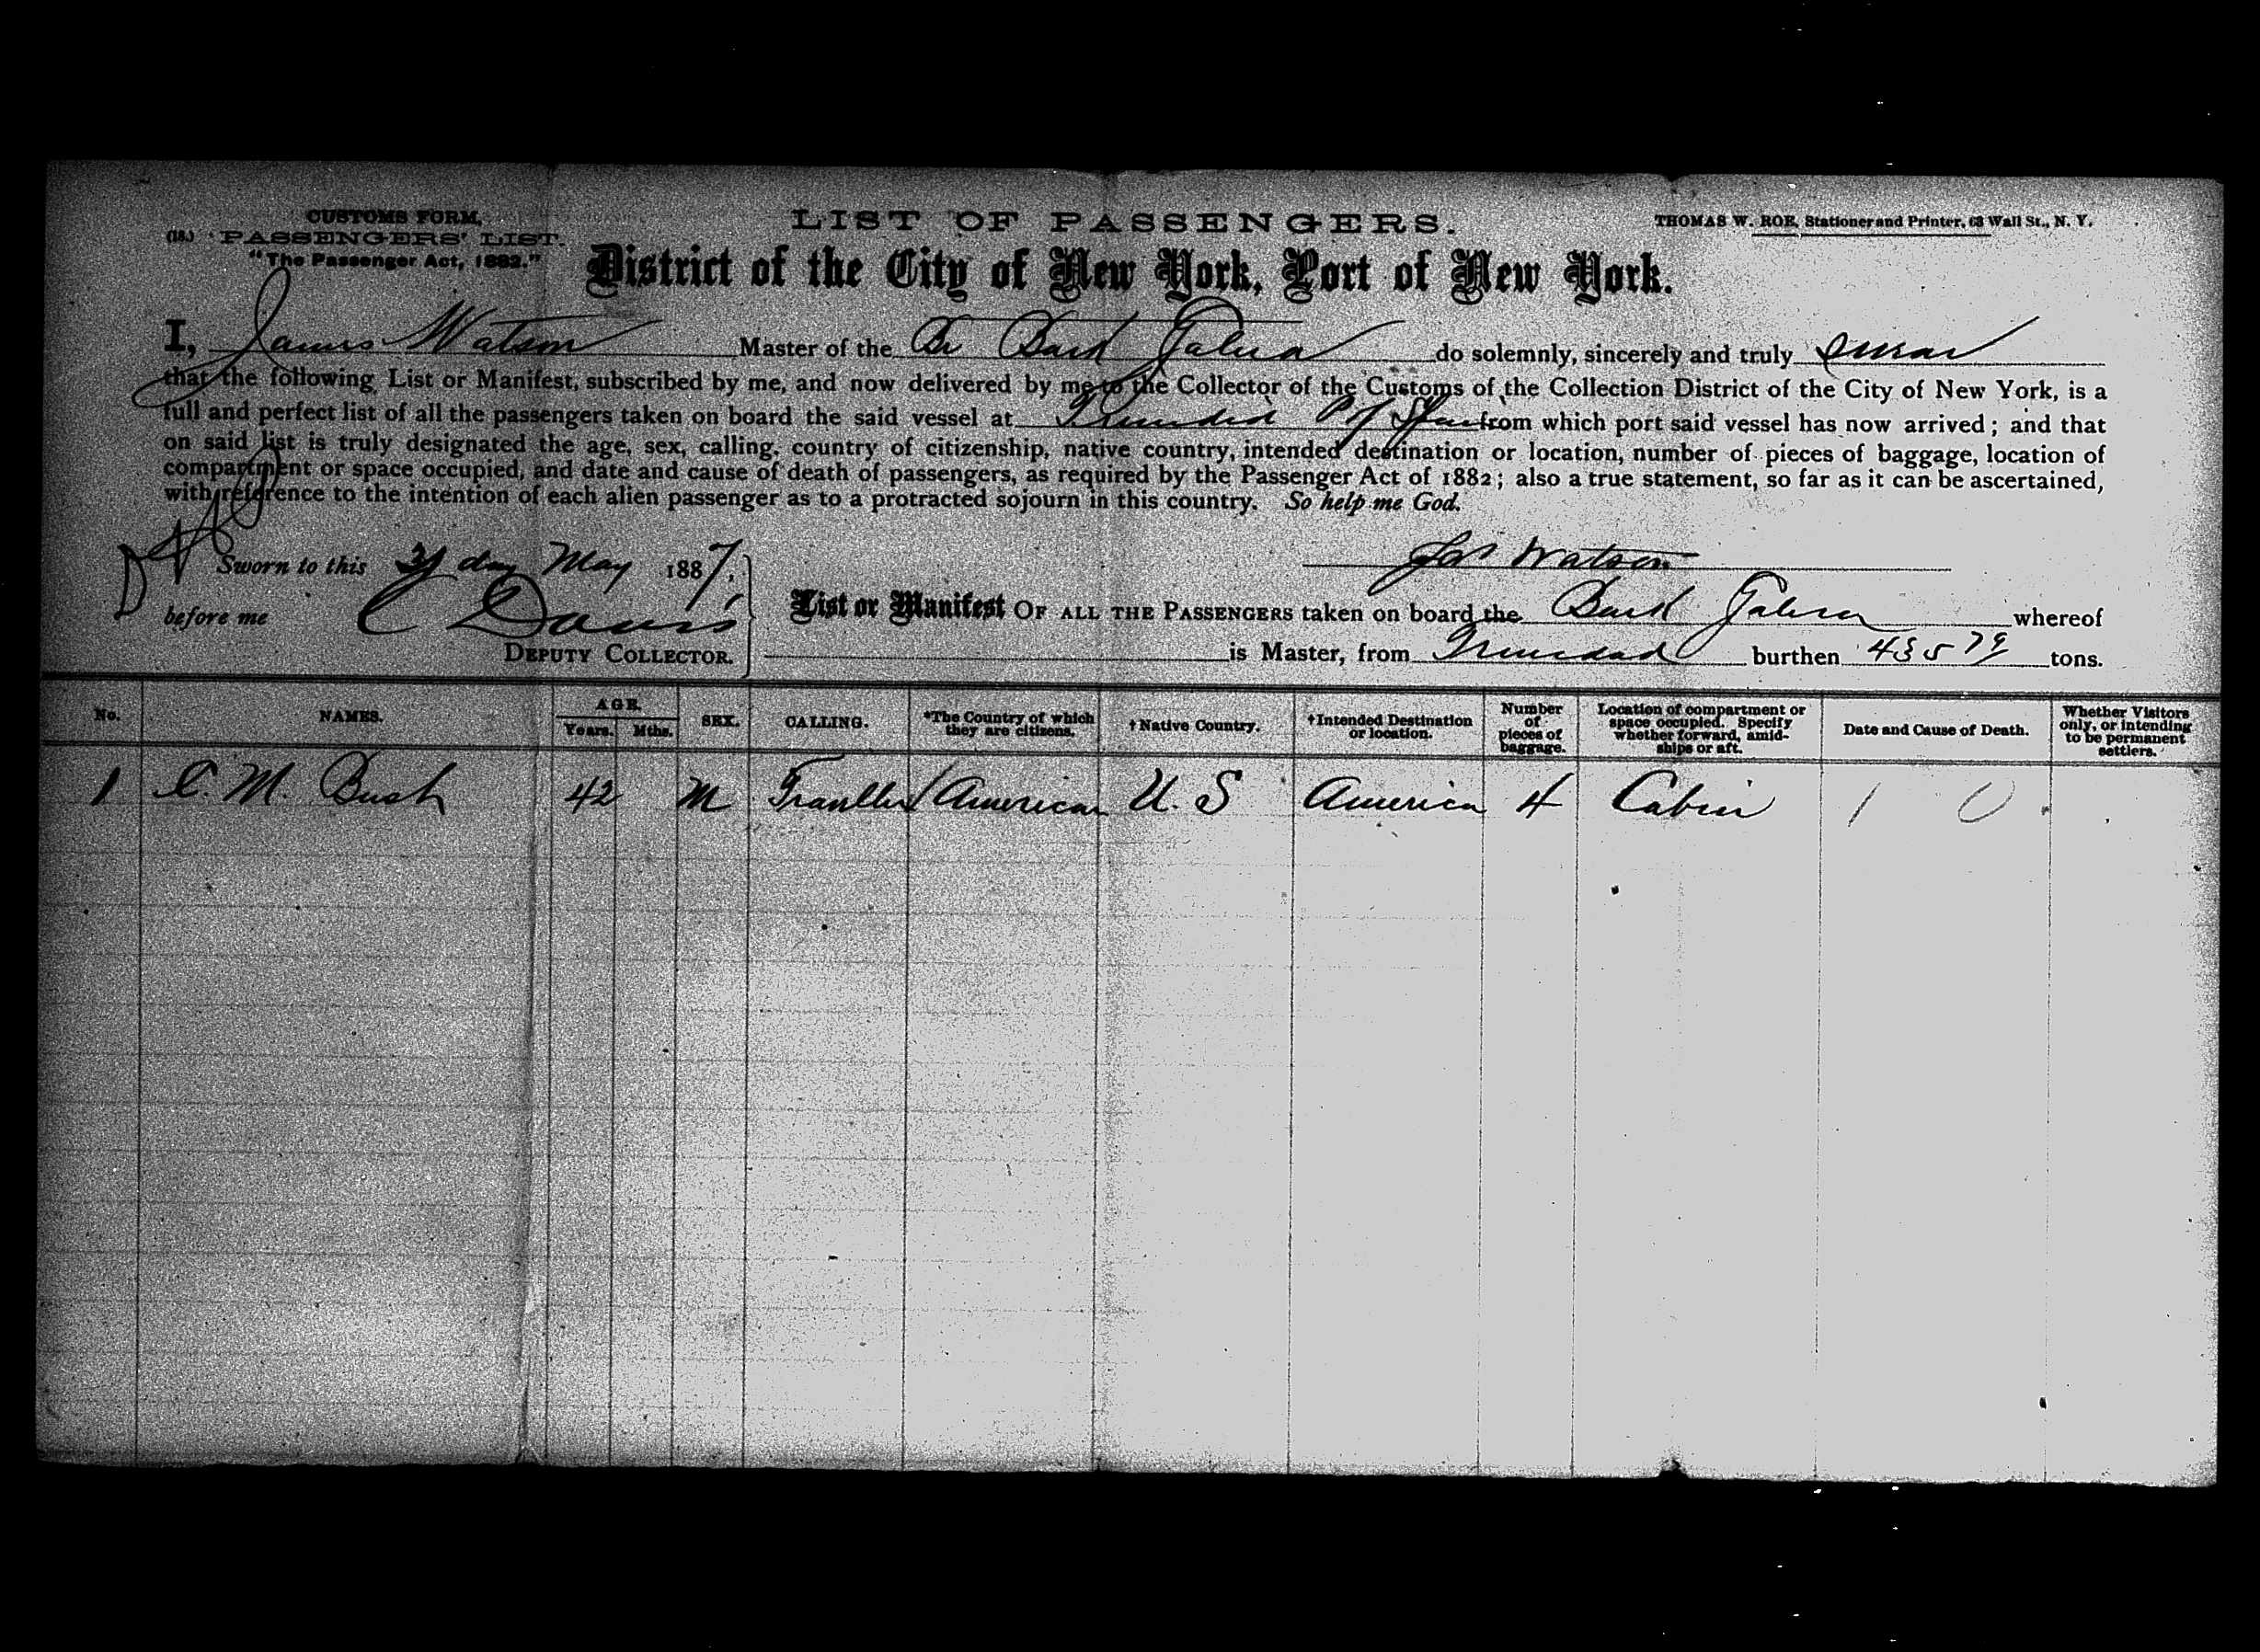 CUSTOMS FORM.
(18.) PASSENGERS' LIST.
"The Passenger Act, 1882."
LIST OF PASSENGERS.
THOMAS W. ROE, Stationer and Printer, 63 Wall St., N. Y.
District of the City of New York, Port of New York.
I, James Watson Master of the Br Bark do solemnly, sincerely and truly swear
that the following List or Manifest, subscribed by me, and now delivered by me to the Collector of the Customs of the Collection District of the City of New York, is a
full and perfect list of all the passengers taken on board the said vessel at Trinidad P of Spain from which port said vessel has now arrived; and that
on said list is truly designated the age, sex, calling, country of citizenship, native country, intended destination or location, number of pieces of baggage, location of
compartment or space occupied, and date and cause of death of passengers, as required by the Passenger Act of 1882; also a true statement, so far as it can be ascertained,
with reference to the intention of each alien passenger as to a protracted sojourn in this country. So help me God.
Sworn to this 31 day May 1887,
Jas Watson
before me C Davis
DEPUTY COLLECTOR.
List or Manifest OF ALL THE PASSENGERS taken on board the Bark whereof
is Master, from Trinidad burthen 435 79 tons.
No. NAMES. AGE. Years. Mths. SEX. CALLING. *The Country of which they are citizens. †Native Country. †Intended Destination or location. Number of pieces of baggage. Location of compartment or space occupied. Specify whether forward, amidships or aft. Date and Cause of Death. Whether Visitors only, or intending to be permanent settlers.
1 C. M. Bush 42 M Traveller American U. S America 4 Cabin 1 0